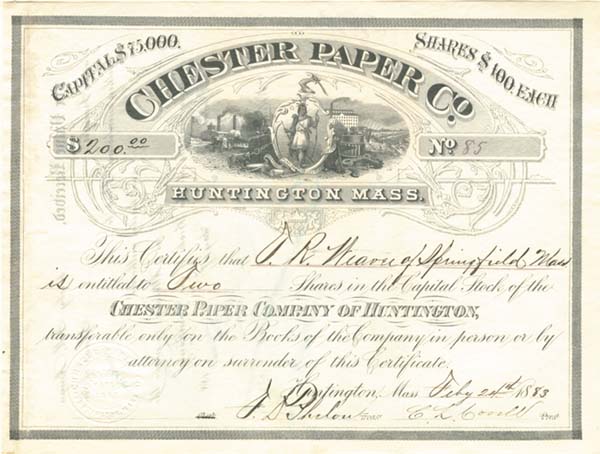 CAPITAL $75,000.
SHARES $100. EACH
CHESTER PAPER CO
$ 200.00
No 85
HUNTINGTON MASS.
This Certifies that of Springfield Mass
is entitled to Two Shares in the Capital Stock of the
CHESTER PAPER COMPANY OF HUNTINGTON,
transferable only on the Books of the Company in person or by
attorney on surrender of this Certificate.
Huntington, Mass Feby 24th 1883
Treas
Pres